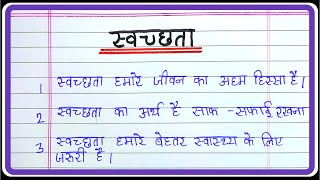 स्वच्छता
1 स्वच्छता हमारे जीवन का अहम हिस्सा है।
2 स्वच्छता का अर्थ है साफ -सफाई रखना
3 स्वच्छता हमारे बेहतर स्वास्थ्य के लिए
जरूरी है।